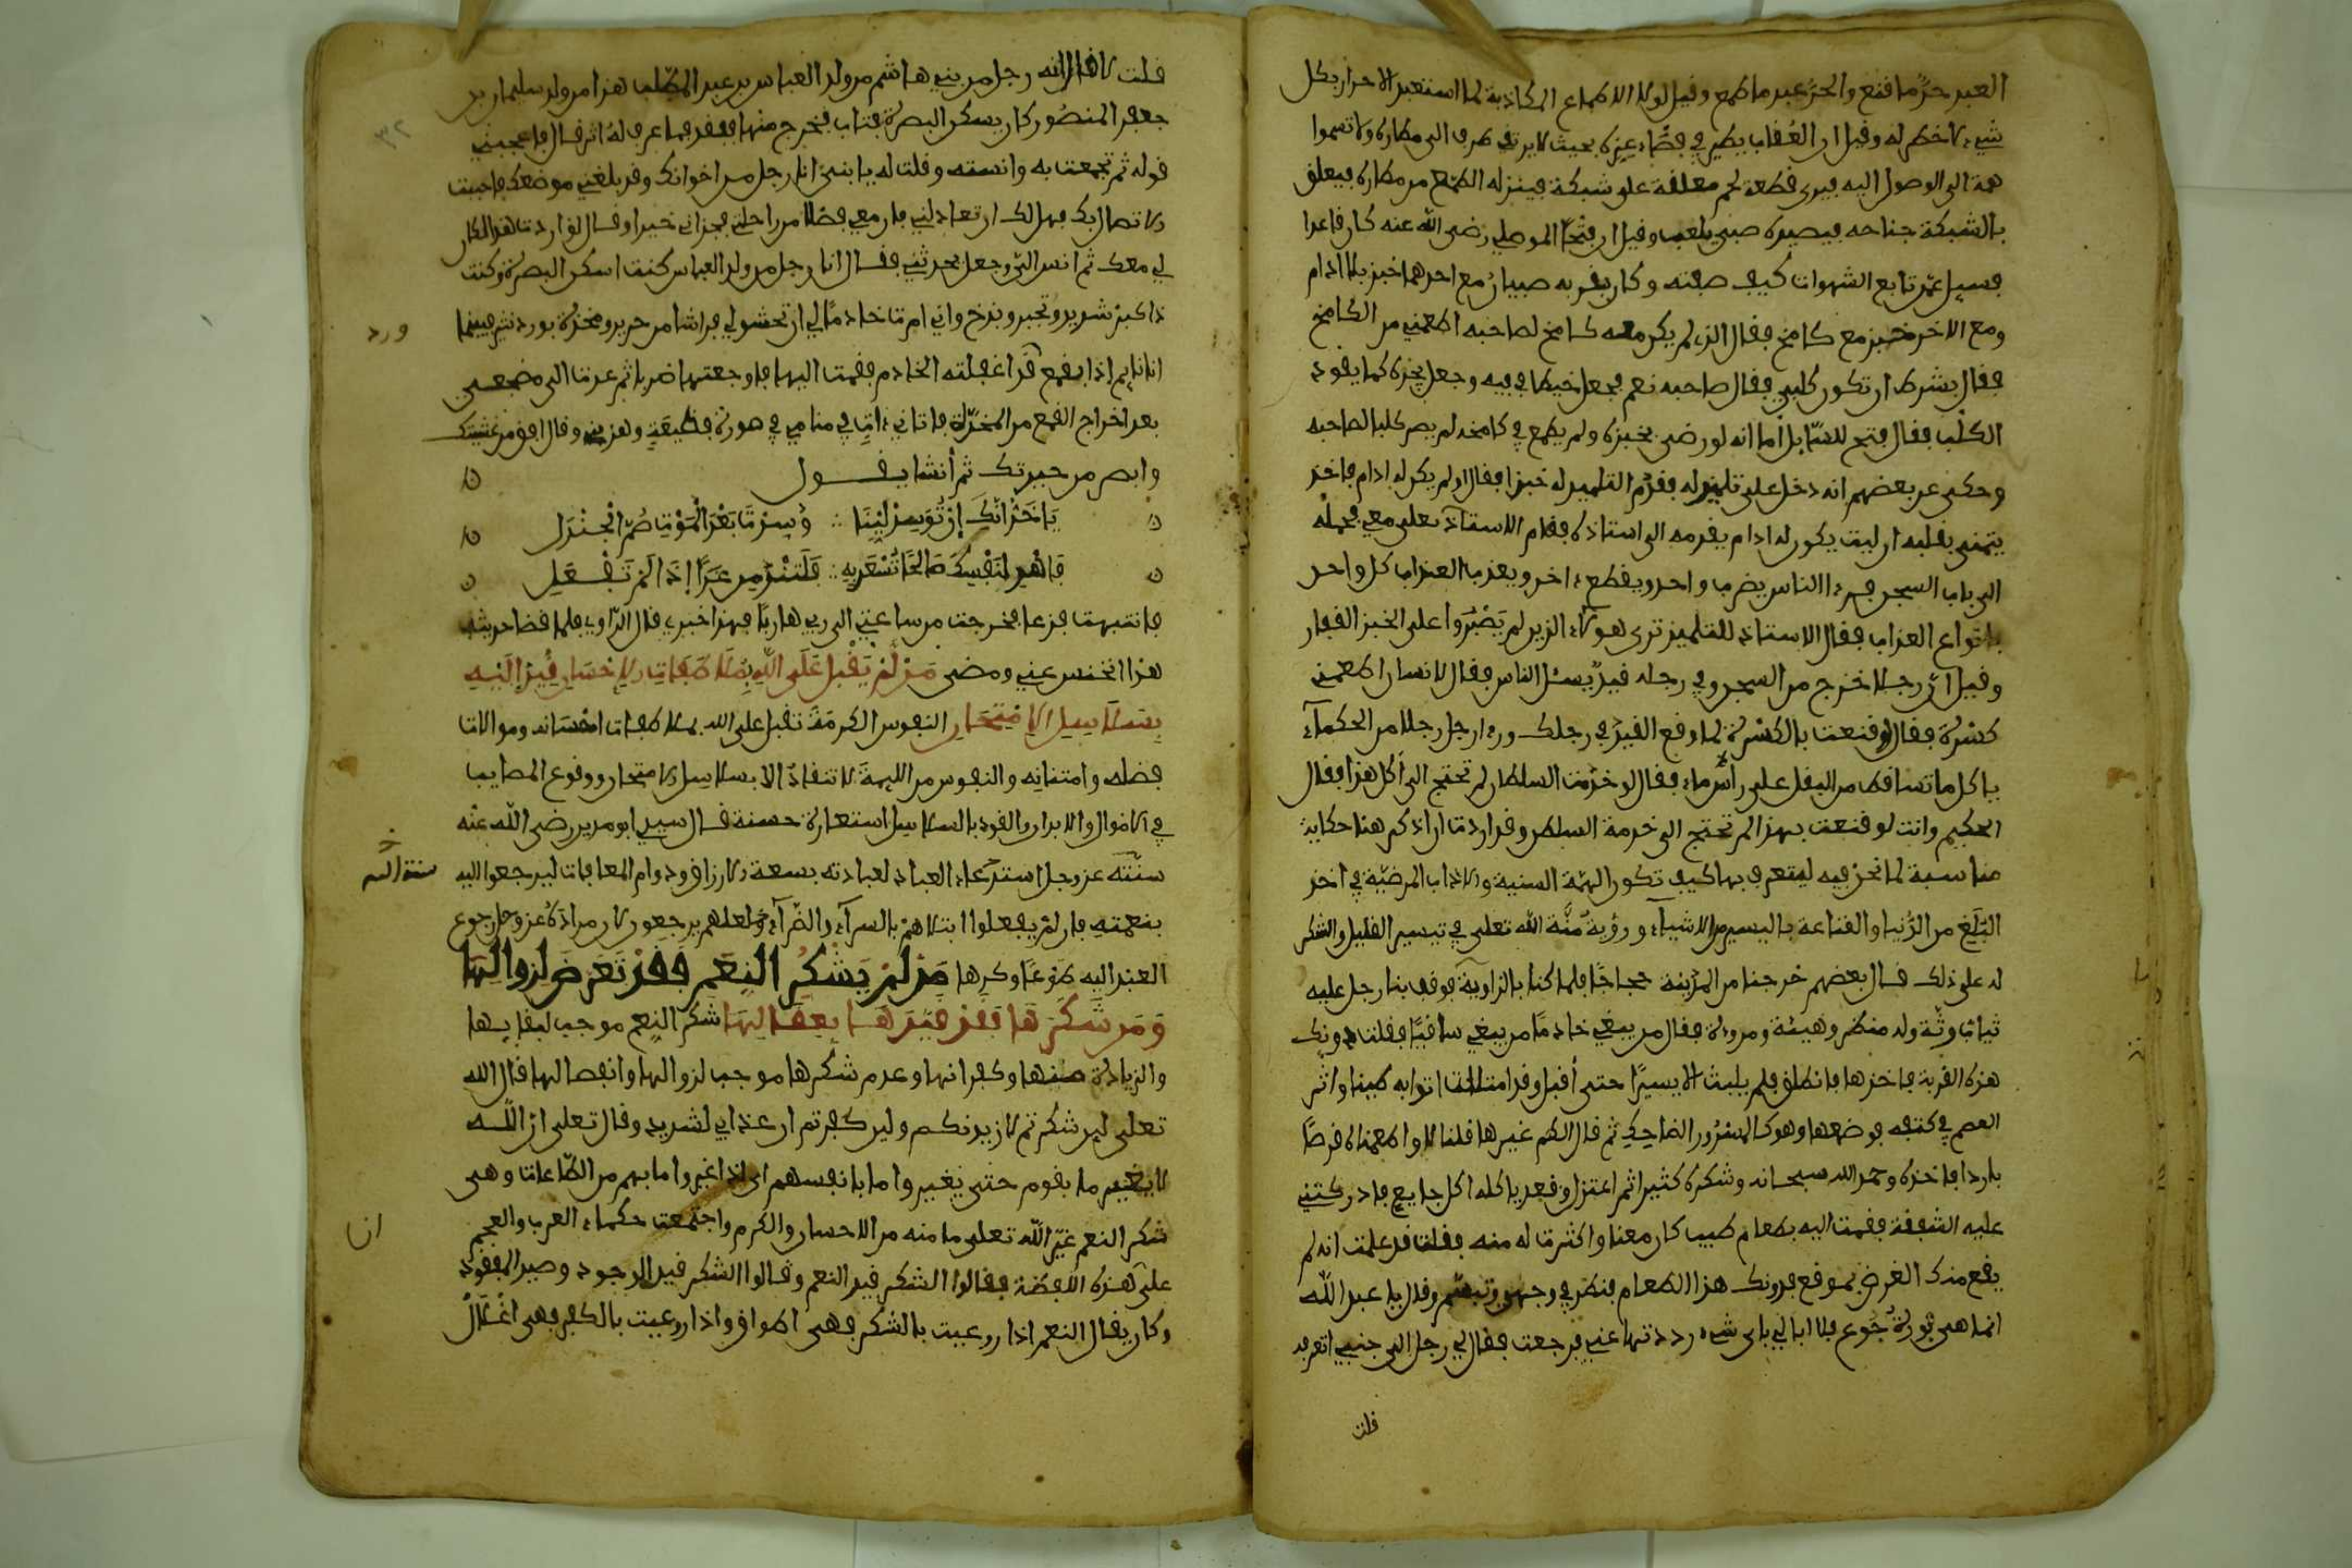 العبد حر ما قنع والحر عبد ما طمع وقيل لولا الاطماع الكاذبة لما استعبد الاحرار بكل
شيء لا خطر له وقيل ان العقاب يطير في فضاء عزه بحيث لا يرتقي طرف الى مطاره ولا تسموا
همة الى الوصول اليه فيرى قطعة لحم معلقة على شبكة فينزله الطمع من مطاره فيعلق
بالشبكة جناحه فيصيره صبي يلعب وقيل ان فتحا الموصلي رضى الله عنه كان قاعدا
فسيل عمن تابع الشهوات كيف صفته وكان بقربه صبيان مع احدهما خبز بلا ادام
ومع الاخر خبز مع كامخ فقال الذي لم يكن معه كامخ لصاحبه اطعمني من الكامخ
فقال بشرط ان تكون كلبي فقال صاحبه نعم فجعل خيطا في فيه وجعل يجره كما يقود
الكلب فقال فتح للسائل أما انه لو رضى بخبزه ولم يطمع في كامخه لم يصر كلبا لصاحبه
وحكى عن بعضهم انه دخل على تلميذ له فقدم التلميذ له خبزا فقال ولم يكن له ادام فاخذ
يتمنى بقلبه ان ليت يكون له ادام يقدمه الى استاذه فقام الاستاذ تعلى معي فحمله
الى باب السجن فرءا الناس يضرب واحد ويقطع ءاخر ويعذب العذاب كل واحد
بانواع العذاب فقال الاستاذ للتلميذ ترى هولاء الذين لم يصبروا على الخبز القفار
وقيل ان رجلا خرج من السجن وفي رجله قيد يسئل الناس فقال لانسان اطعمني
كسرة فقال لو قنعت بالكسرة لما وقع القيد في رجلك ورءا رجل رجلا من الحكماء
ياكل ما تساقط من البقل على رأس ماء فقال لو خدمت السلطان لم تحتج الى أكل هذا فقال
الحكيم وانت لو قنعت بهذا لم تحتج الى خدمة السلطن وقد اردت ان اذكر هنا حكاية
مناسبة لما نحن فيه ليتعرف بها كيف تكون الهمة السنية والاداب المرضية في اخذ
البلغ من الدنيا والقناعة باليسير من الاشياء ورؤية منة الله تعلى في تيسير القليل والشكر
له على ذلك قال بعضهم خرجنا من المدينة حجاجا فلما كنا بالزاوية فوقف بنا رجل عليه
ثياب رثة وله منظر وهيئة ومروءة فقال من يبغي خادما من يبغي ساقيا فقلت دونك
هذه القربة فاخذها فانطلق فلم يلبث الا يسيرا حتى أقبل وقد امتلات اثوابه طينا واثر
في كتفه فوضعها وهو كالمسرور الضاحك ثم قال الكم غيرها قلنا لا واطعمناه قرصا
باردا فاخذه وحمد الله سبحانه وشكره كثيرا ثم اعتزل وقعد ياكله اكل جايع فادركتني
عليه الشفقة فقمت اليه بطعام طيب كان معنا واكثرت له منه فقلت قد علمت انه لم
يقع منك القرص بموقع فدونك هذا الطعام فنظر في وجهي وتبسم وقال يا عبد الله
انما هي فورة جوع فلا ابالي باى شيء رددتها عني فرجعت فقال لي رجل الى جنبي اتعرفه
قلت
قلت لا قال انه رجل من بني هاشم من ولد العباس بن عبد المطلب هذا من ولد سليمان بن
جعفر المنصور كان يسكن البصرة فتاب فخرج منها ففقد فما عرف له اثر قال فاعجبني
قوله ثم تجمعت به وانسته وقلت له يا بني انا رجل من اخوانك وقد بلغني موضعك فاحببت
الاتصال بك فهل لك ان تعادلني فان معي فضلا من راحلتي فجزاني خيرا وقال لو اردت هذا لكان
لي معك ثم انس الي وجعل يحدثني فقال انا رجل من ولد العباس كنت اسكن البصرة وكنت
ذا كبر شديد وتجبر وبذخ واني امرت خادما لي ان تحشو لي فراشا من حرير ومخدة بورد نثير فبينما
ورد
انا نايم اذا بقمع قد اغفلته الخادم فقمت اليها فاوجعتها ضربا ثم عدت الى مضجعي
بعد اخراج القمع من المخدة فاتاني ءات في منامي في صورة فظيعة وهزني وقال افق من غشيتك
وابصر من حيرتك ثم أنشا يقول
يا خد انك ان توسد لينا وسدت بعد الموت صم الجندل
فامهد لنفسك صالحا تسعد به فلتندمن غدا اذا لم تفعل
فانتبهت فزعا فخرجت من ساعتي الى ربي هاربا فهذا خبري قال الراوي فلما قضا حديثه
هذا انخنس عني ومضى من لم يقبل على الله بملاطفات الاحسان قيد اليه
بسلاسيل الامتحان النفوس الكرمة تقبل على الله بملاطفات احسانه وموالات
فضله وامتنانه والنفوس من الليمة لا تنقاد الا بسلاسل الامتحان ووقوع المصايب
في الاموال والابدان والقود بالسلاسل استعارة حسنة قال سيدي ابو مدين رضى الله عنه
سنته عز وجل استدعاء العباد لعبادته بسعة الارزاق ودوام المعافات ليرجعوا اليه
سنة الله
بنعمته فان لم يفعلوا ابتلاهم بالسراء والضراء لعلهم يرجعون لان مراده عز وجل رجوع
العبد اليه طوعا وكرها من لم يشكر النعم فقد تعرض لزوالها
ومن شكرها فقد قيدها بعقالها شكر النعم موجب لبقايها
والزيادة منها وكفرانها وعدم شكرها موجب لزوالها وانفصالها قال الله
تعلى لين شكرتم لازيدنكم ولين كفرتم ان عذابي لشديد وقال تعلى ان الله
لا يغير ما بقوم حتى يغيروا ما بانفسهم اى اذا غيروا ما بهم من الطاعات وهى
شكر النعم غير الله تعلى ما منه من الاحسان والكرم واجتمعت حكماء العرب والعجم
على هذه اللفظة فقالوا الشكر قيد النعم وقالوا الشكر قيد الموجود وصيد المفقود
وكان يقال النعم اذا روعيت بالشكر فهى اطواق واذا روعيت بالكفر فهى اغلال